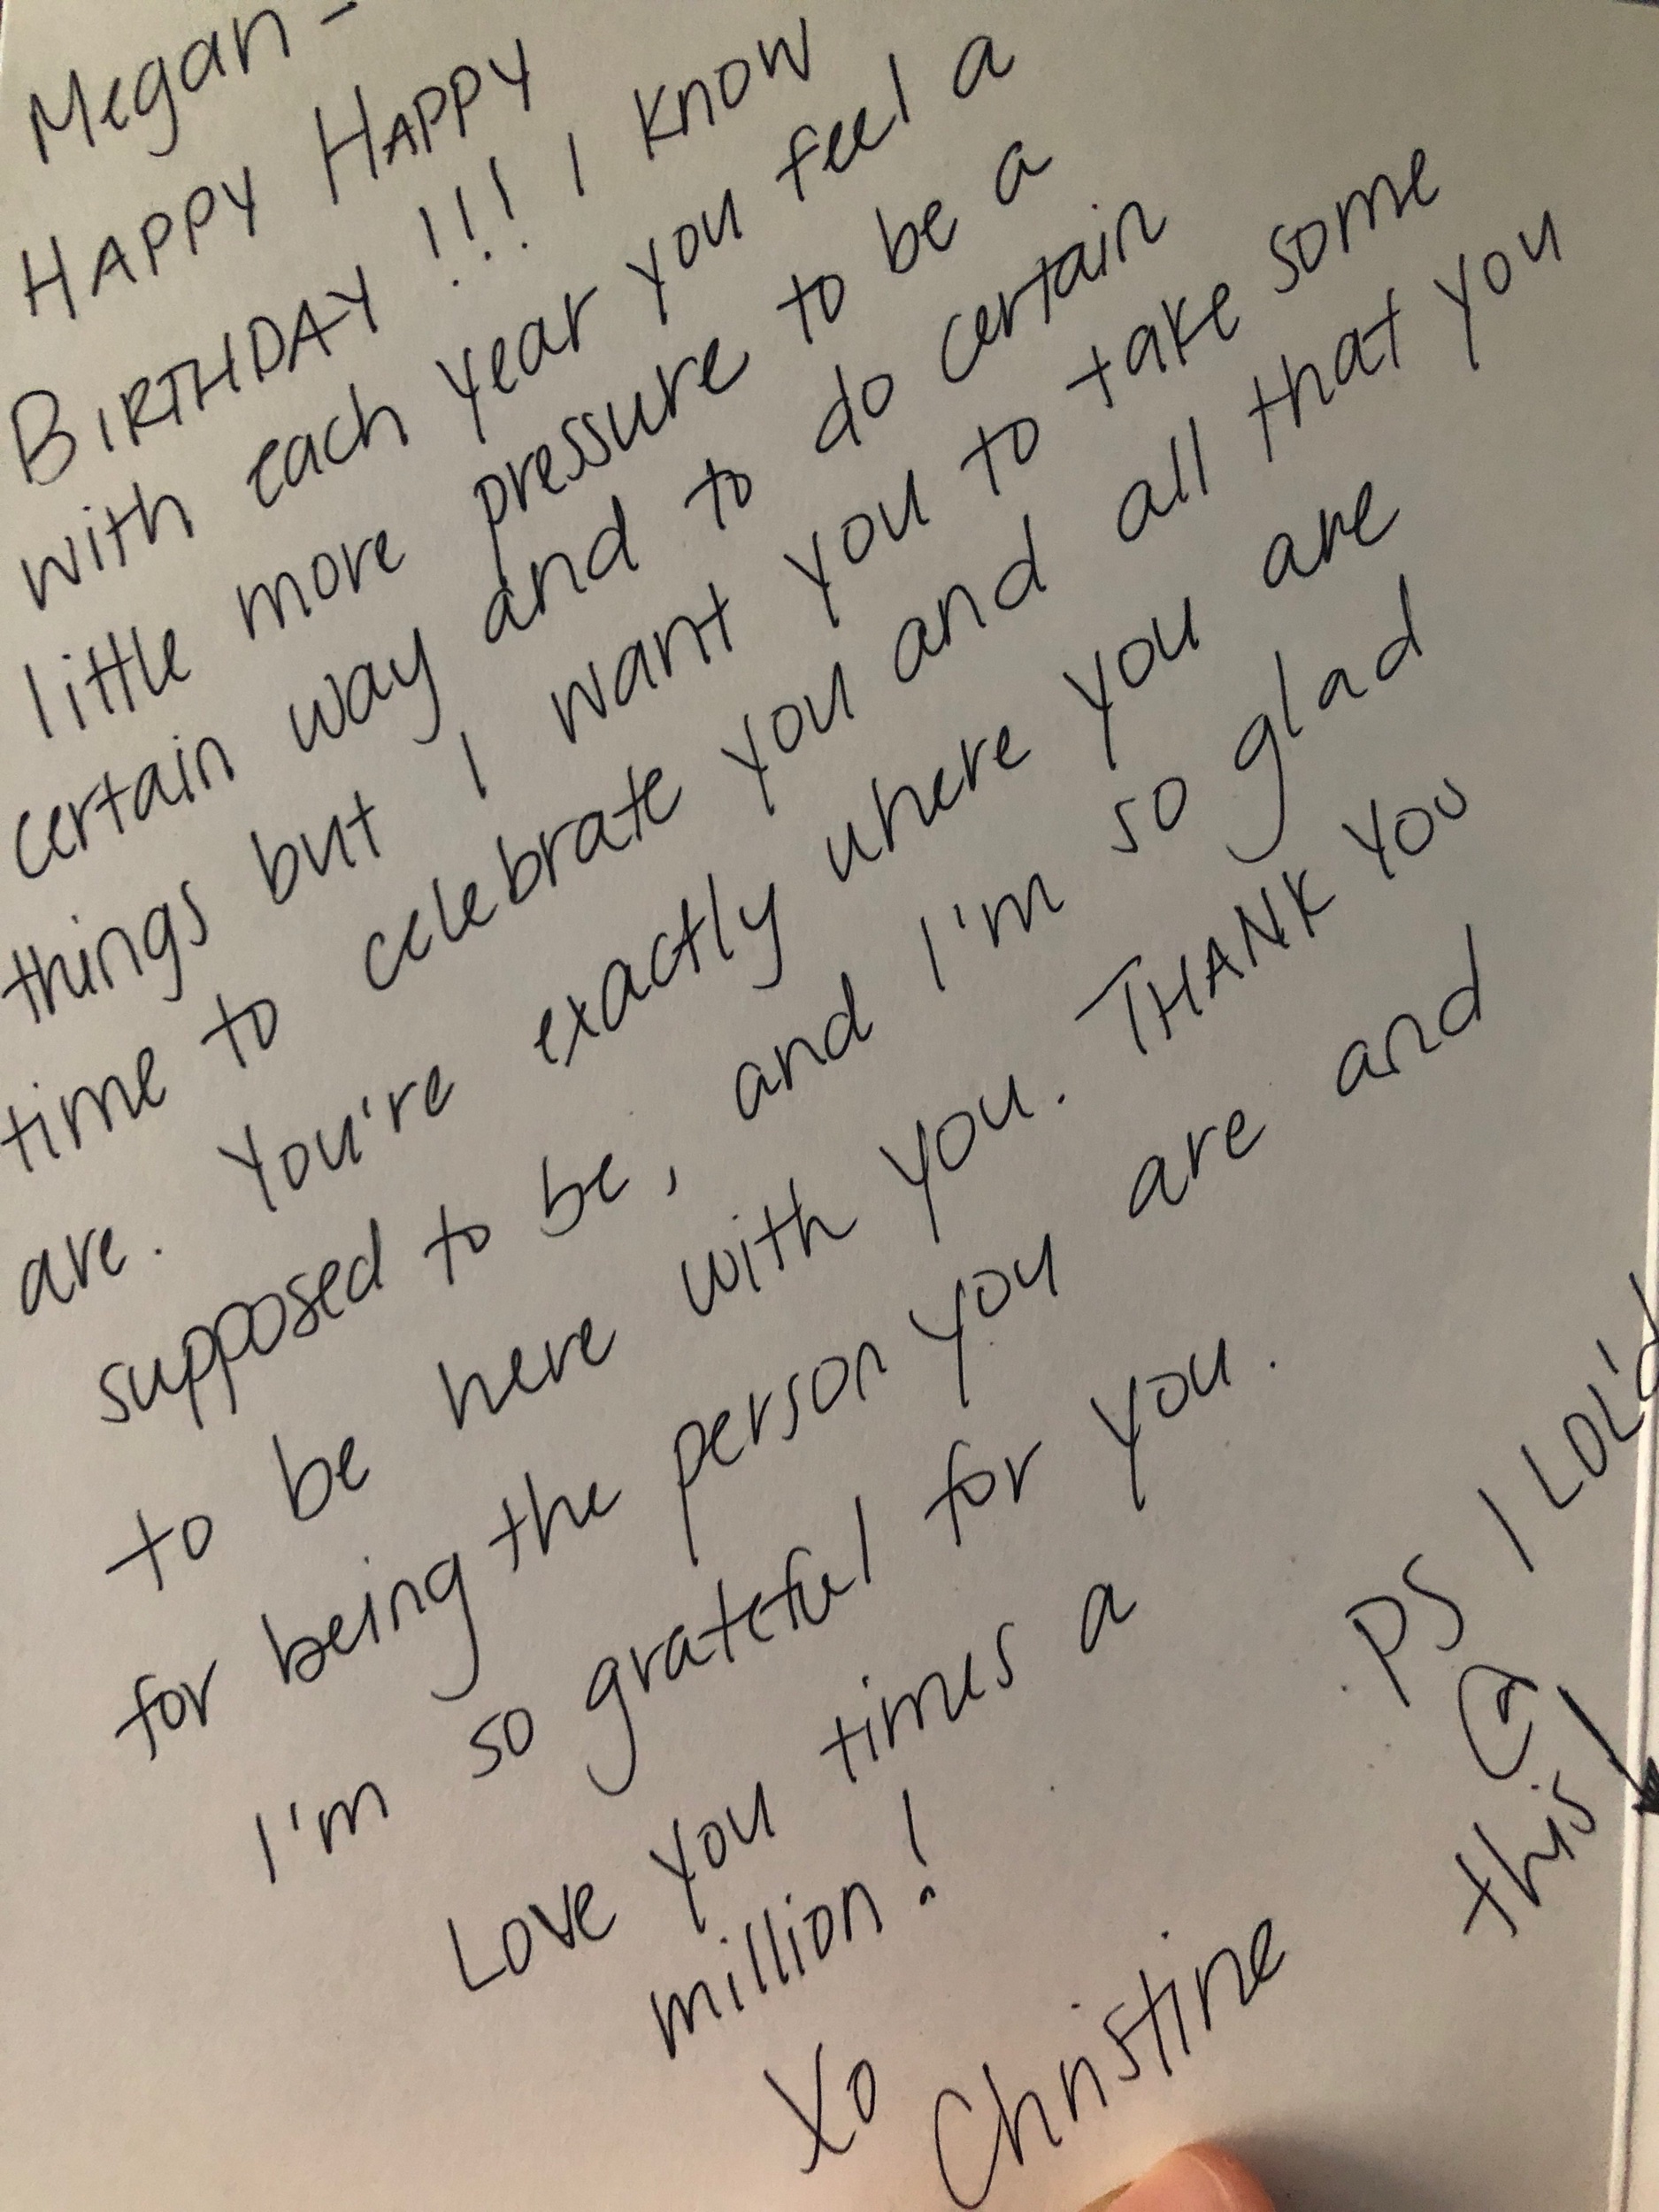 Megan -
HAPPY HAPPY
BIRTHDAY!!! I know
with each year you feel a
little more pressure to be a
certain way and to do certain
things but I want you to take some
time to celebrate you and all that you
are. You're exactly where you are
supposed to be, and I'm so glad
to be here with you. THANK YOU
for being the person you are and
I'm so grateful for you.
Love you times a
million!
XO
Christine
PS I LOL'd
@
this